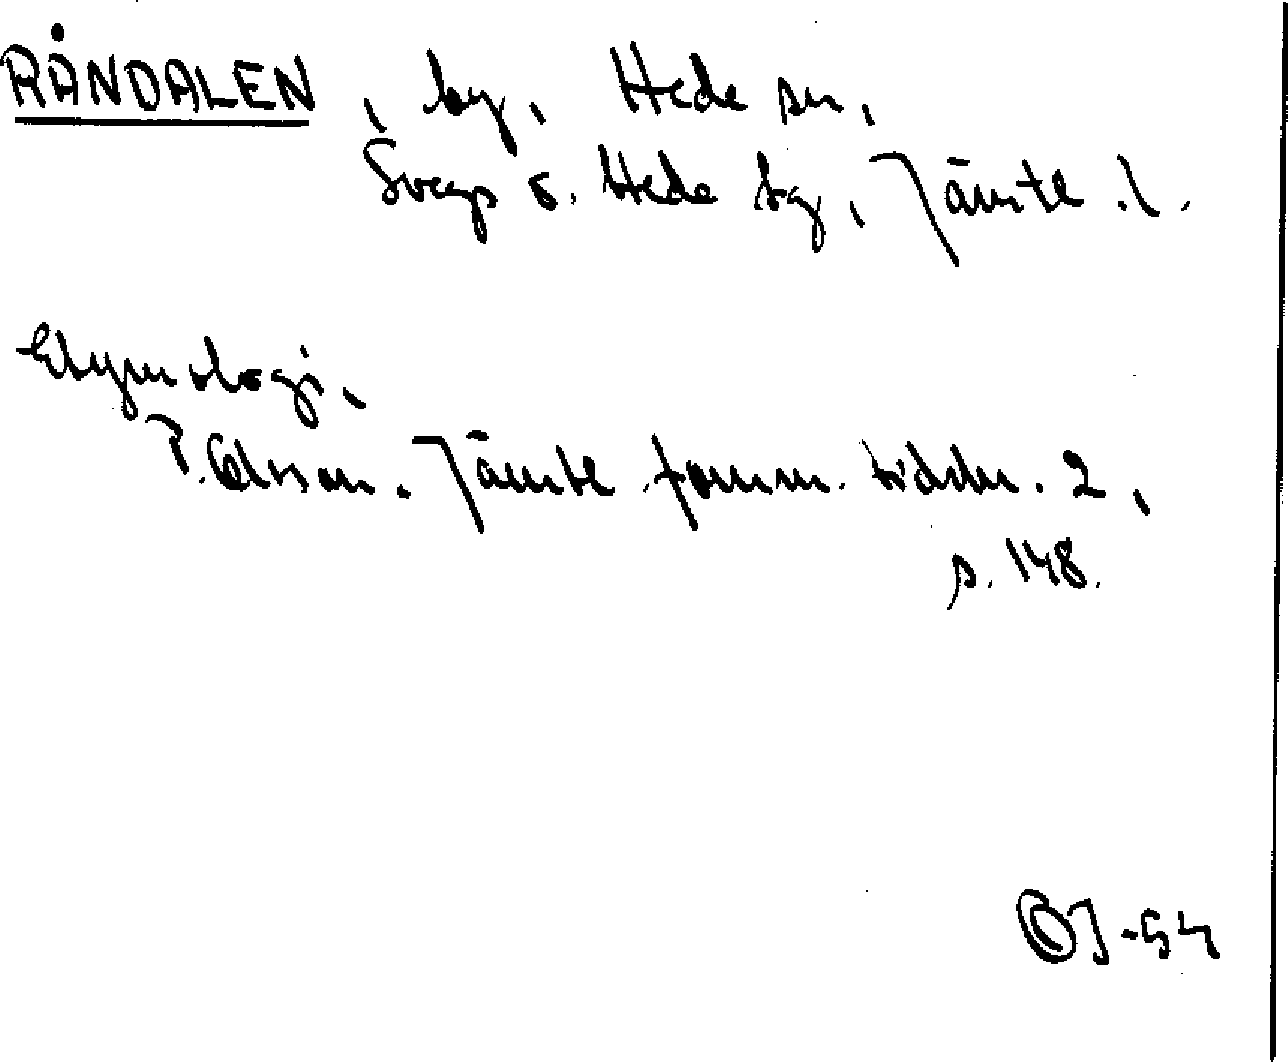 RÅNDALEN, by, Hede sn,
Svegs o. Hede tg, Jämtl. l.
Etymologi,
P. Olsson. Jämtl fornm. tidskr. 2,
s. 148.
OJ-54